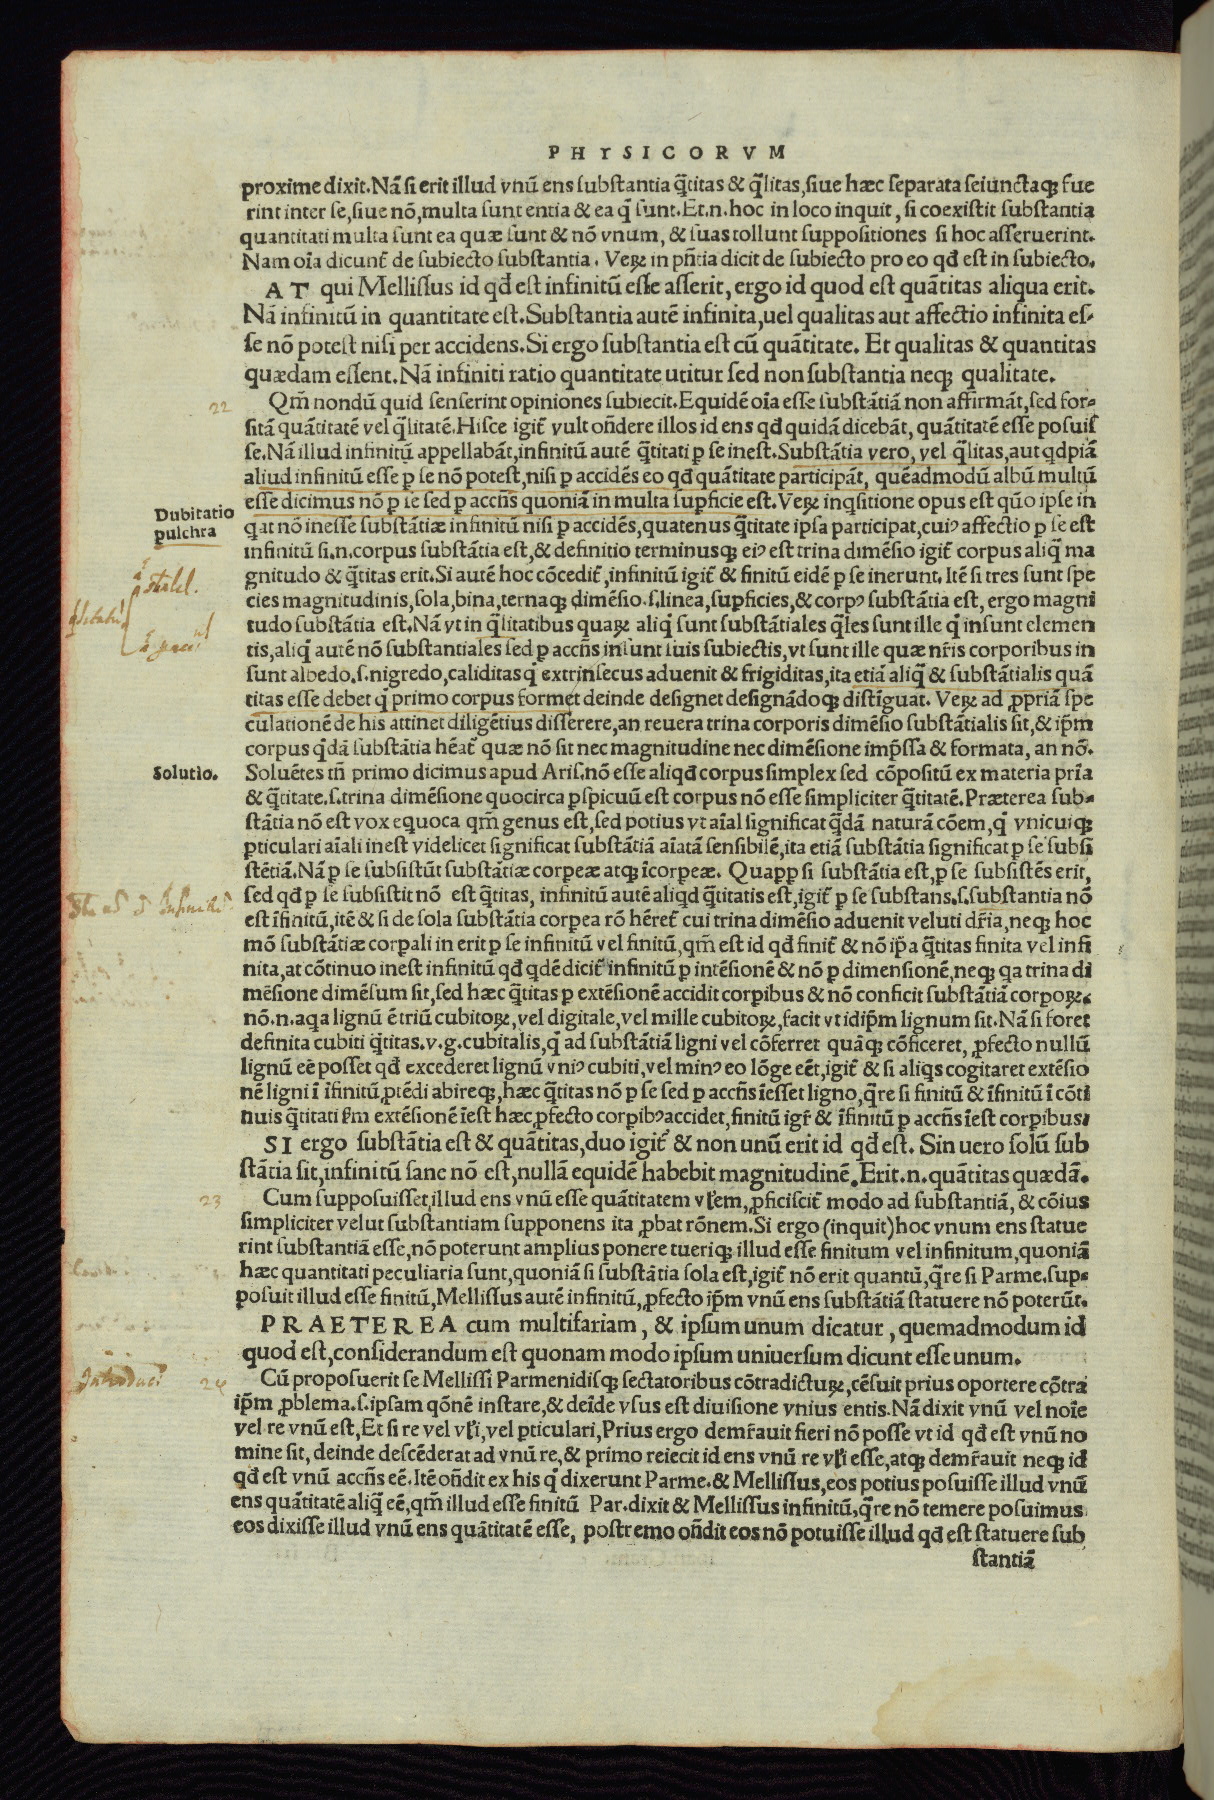 PHYSICORVM
proxime dixit. Nã si erit illud vnũ ens substantia q̃titas & q̃litas, siue hæc separata seiunctaq; fue
rint inter se, siue nõ, multa sunt entia & ea q̃ sunt. Et .n. hoc in loco inquit, si coexistit substantia
quantitati multa sunt ea quæ sunt & nõ vnum, & suas tollunt suppositiones si hoc asseruerint.
Nam oĩa dicunt᷑ de subiecto substantia. Veꝝ in pñtia dicit de subiecto pro eo qđ est in subiecto.
AT qui Mellissus id qđ est infinitũ esse asserit, ergo id quod est quãtitas aliqua erit.
Nã infinitũ in quantitate est. Substantia autẽ infinita, uel qualitas aut affectio infinita es-
se nõ potest nisi per accidens. Si ergo substantia est cũ quãtitate. Et qualitas & quantitas
quædam essent. Nã infiniti ratio quantitate utitur sed non substantia neq; qualitate.
22
Qm̃ nondũ quid senserint opiniones subiecit. Equidẽ oĩa esse substãtiã non affirmãt, sed for-
sitã quãtitatẽ vel q̃litatẽ. Hisce igit᷑ vult oñdere illos id ens qđ quidã dicebãt, quãtitatẽ esse posuis
se. Nã illud infinitũ appellabãt, infinitũ autẽ q̃titati ꝑ se inest. Substãtia vero, vel q̃litas, aut qdpiã
aliud infinitũ esse ꝑ se nõ potest, nisi ꝑ accidẽs eo qđ quãtitate participãt, quẽadmodũ albũ multũ
esse dicimus nõ ꝑ se sed ꝑ accñs quoniã in multa suꝑficie est. Veꝝ inqsitione opus est qũo ipse in
Dubitatio
pulchra
qat nõ inesse substãtiæ infinitũ nisi ꝑ accidẽs, quatenus q̃titate ipsa participat, cuiꝰ affectio ꝑ se est
infinitũ si .n. corpus substãtia est, & definitio terminusq; eiꝰ est trina dimẽsio igit᷑ corpus aliq̃ ma
gnitudo & q̃titas erit. Si autẽ hoc cõcedit᷑, infinitũ igit᷑ & finitũ eidẽ ꝑ se inerunt. Itẽ si tres sunt spe
cies magnitudinis, sola, bina, ternaq; dimẽsio .s. linea, suꝑficies, & corpꝰ substãtia est, ergo magni
tudo substãtia est. Nã vt in q̃litatibus quaꝝ aliq̃ sunt substãtiales q̃les sunt ille q̃ insunt elemen
tis, aliq̃ autẽ nõ substantiales sed ꝑ accñs insunt suis subiectis, vt sunt ille quæ nr̃is corporibus in
sunt albedo .s. nigredo, caliditas q̃ extrinsecus aduenit & frigiditas, ita etiã aliq̃ & substãtialis quã
titas esse debet q̃ primo corpus formet deinde designet designãdoq; distĩguat. Veꝝ ad ꝓpriã spe
culationẽ de his attinet diligẽtius disserere, an reuera trina corporis dimẽsio substãtialis sit, & ip̃m
corpus q̃dã substãtia hẽat᷑ quæ nõ sit nec magnitudine nec dimẽsione imp̃ssa & formata, an nõ.
Solutio.
Soluẽtes tñ primo dicimus apud Aris. nõ esse aliqđ corpus simplex sed cõpositũ ex materia prĩa
& q̃titate .s. trina dimẽsione quocirca ꝑspicuũ est corpus nõ esse simpliciter q̃titatẽ. Præterea sub-
stãtia nõ est vox equoca qm̃ genus est, sed potius vt aĩal significat q̃dã naturã cõem, q̃ vnicuiq;
ꝑticulari aĩali inest videlicet significat substãtiã aĩatã sensibilẽ, ita etiã substãtia significat ꝑ se subsi
stẽtiã. Nã ꝑ se subsistũt substãtiæ corpeæ atq; ĩcorpeæ. Quaꝑꝑ si substãtia est, ꝑ se subsistẽs erit,
sed qđ ꝑ se subsistit nõ est q̃titas, infinitũ autẽ aliqđ q̃titatis est, igit᷑ ꝑ se substans .s. substantia nõ
est ĩfinitũ, itẽ & si de sola substãtia corpea rõ hẽret᷑ cui trina dimẽsio aduenit veluti dr̃ia, neq; hoc
mõ substãtiæ corpali in erit ꝑ se infinitũ vel finitũ, qm̃ est id qđ finit᷑ & nõ ip̃a q̃titas finita vel infi
nita, at cõtinuo inest infinitũ qđ qdẽ dicit᷑ infinitũ ꝑ intẽsionẽ & nõ ꝑ dimensionẽ, neq; qa trina di
mẽsione dimẽsum sit, sed hæc q̃titas ꝑ extẽsionẽ accidit corpibus & nõ conficit substãtiã corpoꝝ.
nõ .n. aqa lignũ ẽ triũ cubitoꝝ, vel digitale, vel mille cubitoꝝ, facit vt idip̃m lignum sit. Nã si foret
definita cubiti q̃titas .v.g. cubitalis, q̃ ad substãtiã ligni vel cõferret quãq; cõficeret, ꝓfecto nullũ
lignũ eẽ posset qđ excederet lignũ vniꝰ cubiti, vel minꝰ eo lõge eẽt, igit᷑ & si aliqs cogitaret extẽsio
nẽ ligni ĩ ĩfinitũ, ꝓtẽdi abireq;, hæc q̃titas nõ ꝑ se sed ꝑ accñs ĩesset ligno, q̃re si finitũ & ĩfinitũ ĩ cõti
nuis q̃titati ẜm extẽsionẽ ĩest hæc ꝓfecto corpibꝰ accidet, finitũ igr̃ & ĩfinitũ ꝑ accñs ĩest corpibus.
SI ergo substãtia est & quãtitas, duo igit᷑ & non unũ erit id qđ est. Sin uero solũ sub
stãtia sit, infinitũ sane nõ est, nullã equidẽ habebit magnitudinẽ. Erit .n. quãtitas quædã.
23
Cum supposuisset, illud ens vnũ esse quãtitatem vĺem, ꝓficiscit᷑ modo ad substantiã, & cõius
simpliciter velut substantiam supponens ita ꝓbat rõnem. Si ergo (inquit) hoc vnum ens statue
rint substantiã esse, nõ poterunt amplius ponere tueriq; illud esse finitum vel infinitum, quoniã
hæc quantitati peculiaria sunt, quoniã si substãtia sola est, igit᷑ nõ erit quantũ, q̃re si Parme. sup-
posuit illud esse finitũ, Mellissus autẽ infinitũ, ꝓfecto ip̃m vnũ ens substãtiã statuere nõ poterũt.
PRAETEREA cum multifariam, & ipsum unum dicatur, quemadmodum id
quod est, considerandum est quonam modo ipsum uniuersum dicunt esse unum.
24
Cũ proposuerit se Mellissi Parmenidisq; sectatoribus cõtradictuꝝ, cẽsuit prius oportere cõtra
ip̃m ꝓblema .s. ipsam qõnẽ instare, & deĩde vsus est diuisione vnius entis. Nã dixit vnũ vel noĩe
vel re vnũ est, Et si re vel vĺi, vel ꝑticulari, Prius ergo demr̃auit fieri nõ posse vt id qđ est vnũ no
mine sit, deinde descẽderat ad vnũ re, & primo reiecit id ens vnũ re vĺi esse, atq; demr̃auit neq; id
qđ est vnũ accñs eẽ. Itẽ oñdit ex his q̃ dixerunt Parme. & Mellissus, eos potius posuisse illud vnũ
ens quãtitatẽ aliq̃ eẽ, qm̃ illud esse finitũ Par. dixit & Mellissus infinitũ, q̃re nõ temere posuimus
eos dixisse illud vnũ ens quãtitatẽ esse, postremo oñdit eos nõ potuisse illud qđ est statuere sub
stantiã